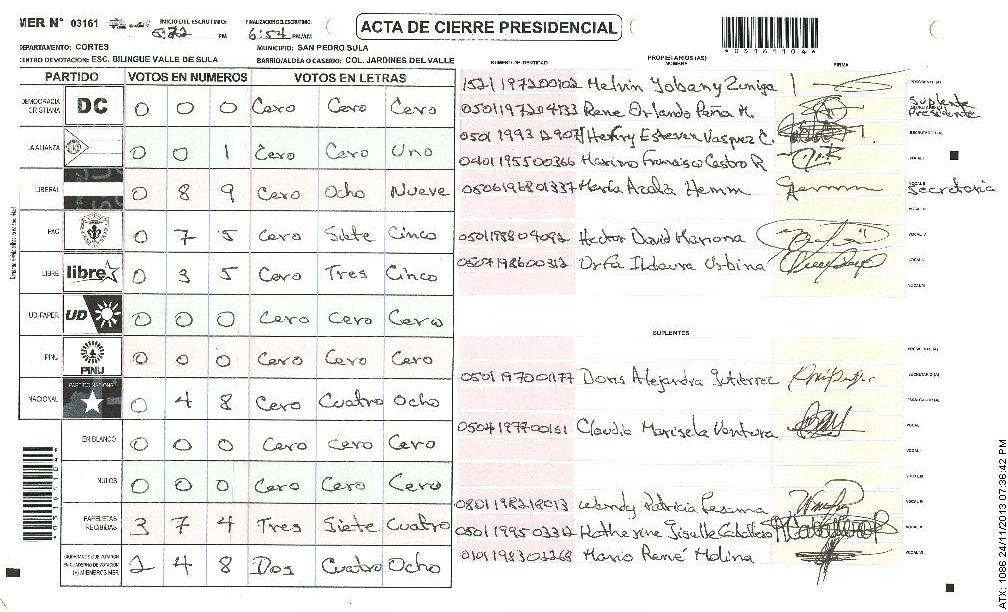 MER N° 03161
INICIO DEL ESCRUTINIO: PM
FINALIZACION DEL ESCRUTINIO: 6:54 PM/AM
ACTA DE CIERRE PRESIDENCIAL
DEPARTAMENTO: CORTES
MUNICIPIO: SAN PEDRO SULA
CENTRO DE VOTACION: ESC. BILINGUE VALLE DE SULA
BARRIO/ALDEA O CASERIO: COL. JARDINES DEL VALLE
PARTIDO VOTOS EN NUMEROS VOTOS EN LETRAS
DEMOCRACIA CRISTIANA DC 0 0 0 Cero Cero Cero
LA ALIANZA 0 0 1 Cero Cero Uno
LIBERAL 0 8 9 Cero Ocho Nueve
PAC 0 7 5 Cero Siete Cinco
LIBRE libre 0 3 5 Cero Tres Cinco
UD-FAPER UD 0 0 0 Cero Cero Cero
PINU PINU 0 0 0 Cero Cero Cero
NACIONAL PARTIDO NACIONAL 0 4 8 Cero Cuatro Ocho
EN BLANCO 0 0 0 Cero Cero Cero
NULOS 0 0 0 Cero Cero Cero
PAPELETAS RECIBIDAS 3 7 4 Tres Siete Cuatro
CIUDADANOS QUE VOTARON EN CUADERNO DE VOTACION (+) MIEMBROS MER 2 4 8 Dos Cuatro Ocho
NUMERO DE IDENTIDAD PROPIETARIOS (AS) NOMBRE FIRMA
1521197200102 Melvin Yobany Zuniga PRESIDENTE (A)
0501197204133 Rene Orlando Peña M. Suplente Presidente
Henry Esteven Vasquez C. SECRETARIO (A)
0401195500366 Marino Francisco Castro R VOCAL I
0506196801337 Maria Azalia Hemm Secretaria
0501198804092 Hector David Mariona
0507198600312 Orfa Ildaura Urbina
SUPLENTES
PRESIDENTE (A)
0501197001177 Doris Alejandra Gutierrez SECRETARIO (A)
ESCRUTADOR (A)
0504197700151 Claudia Marisela Ventura VOCAL I
0801198218013 Wendy Patricia Lezama
0501199503312 Katherine Giselle Caballero
0101198303268 Mario René Molina
03161104
ATX: 1086 24/11/2013 07:36:42 PM